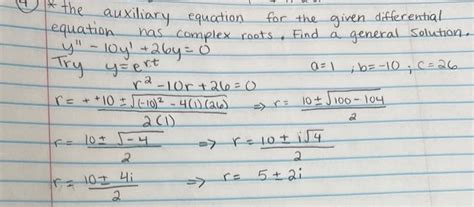 ④ * the auxiliary equation for the given differential
equation has complex roots. Find a general solution.
y'' - 10y' + 26y = 0
Try y = e^rt a=1 ; b=-10 ; c=26
r² - 10r + 26 = 0
r = ++10 ± √(-10)² - 4(1)(26) / 2(1) => r = 10 ± √100 - 104 / 2
r = 10 ± √-4 / 2 => r = 10 ± i√4 / 2
r = 10 ± 4i / 2 => r = 5 ± 2i